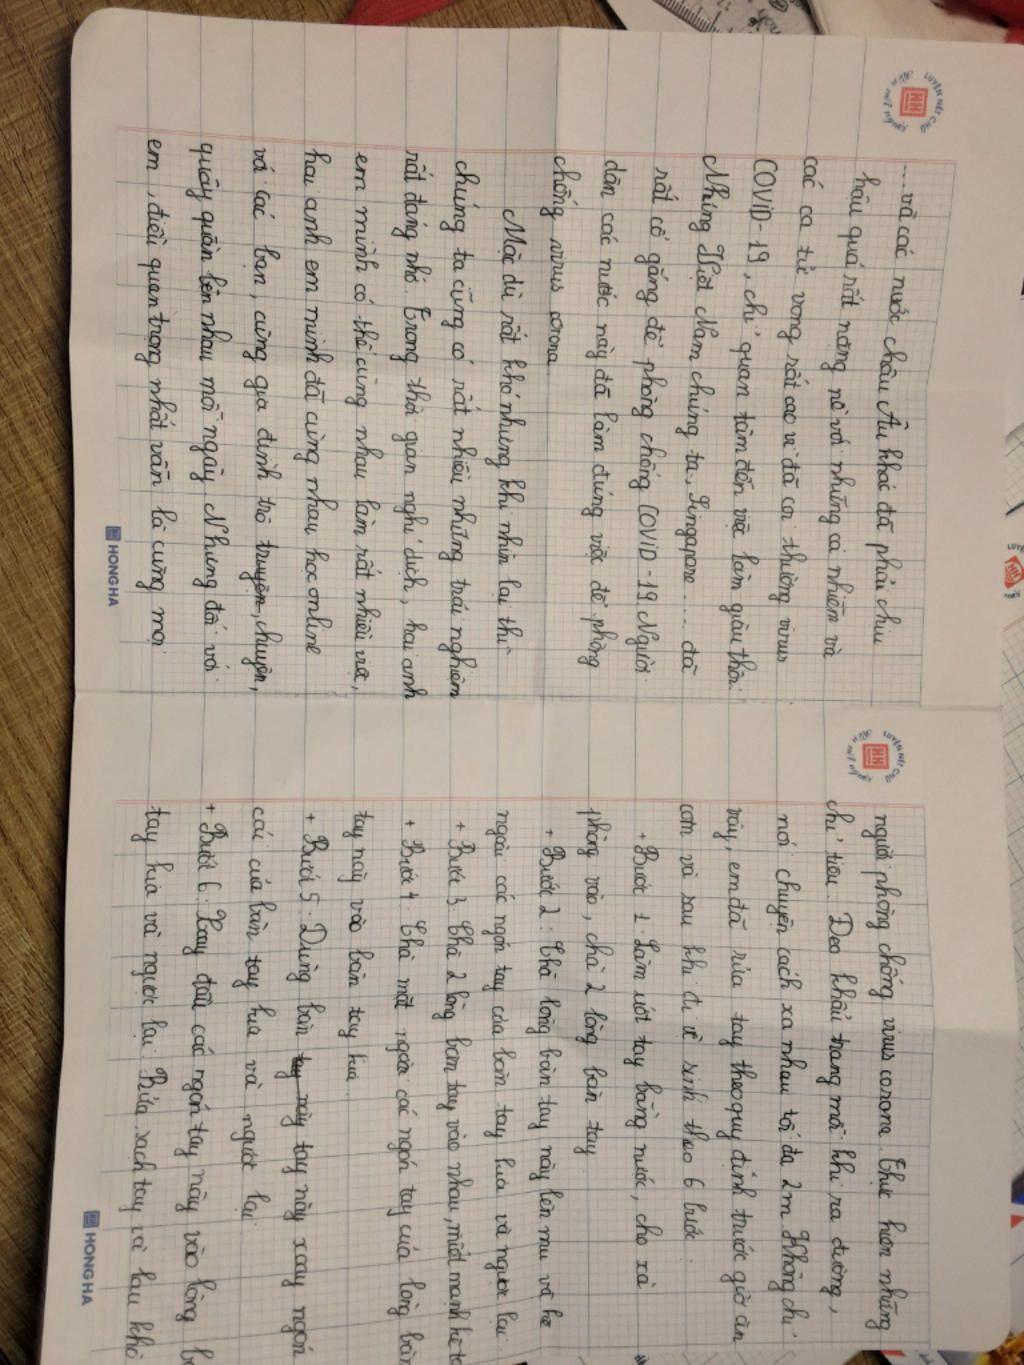 LUYỆN NÉT CHỮ
NẾT NGƯỜI
....và các nước châu Âu khác đã phải chịu
hậu quả rất nặng nề với những ca nhiễm và
các ca tử vong rất cao vì đã coi thường virus
COVID-19, chỉ quan tâm đến việc làm giàu thôi.
Nhưng Việt Nam chúng ta, Singapore.... đã
rất cố gắng để phòng chống COVID-19 Người
dân các nước này đã làm đúng việc để phòng
chống virus corona
Mặc dù rất khó nhưng khi nhìn lại thì
chúng ta cũng có rất nhiều những trải nghiệm
rất đáng nhớ. Trong thời gian nghỉ dịch, hai anh
em mình có thể cùng nhau làm rất nhiều việc,
hai anh em mình đã cùng nhau học online
với các bạn, cùng gia đình trò truyện, chuyện,
quây quần bên nhau mỗi ngày. Nhưng đối với
em, điều quan trọng nhất vẫn là cùng mọi
HONG HA
LUYỆN NÉT CHỮ
NẾT NGƯỜI
người phòng chống virus corona. Thực hiện những
chỉ tiêu. Đeo khẩu trang mỗi khi ra đường,
nói chuyện cách xa nhau tối đa 2m Không chỉ
vậy, em đã rửa tay theo quy định trước giờ ăn
cơm và sau khi đi vệ sinh theo 6 bước:
+ Bước 1: Làm ướt tay bằng nước, cho xà
phòng vào, chà 2 lòng bàn tay
+ Bước 2: Chà lòng bàn tay này lên mu và kẽ
ngoài các ngón tay của bàn tay kia và ngược lại.
+ Bước 3: Chà 2 lòng bàn tay vào nhau, miết mạnh kẽ
+ Bước 4: Chà mặt ngoài các ngón tay của lòng bàn
tay này vào bàn tay kia.
+ Bước 5: Dùng bàn tay này tay này xoay ngón
cái của bàn tay kia và ngược lại
+ Bước 6: Xoay đầu các ngón tay này vào lòng
tay kia và ngược lại. Rửa sạch tay và lau khô
HONG HA